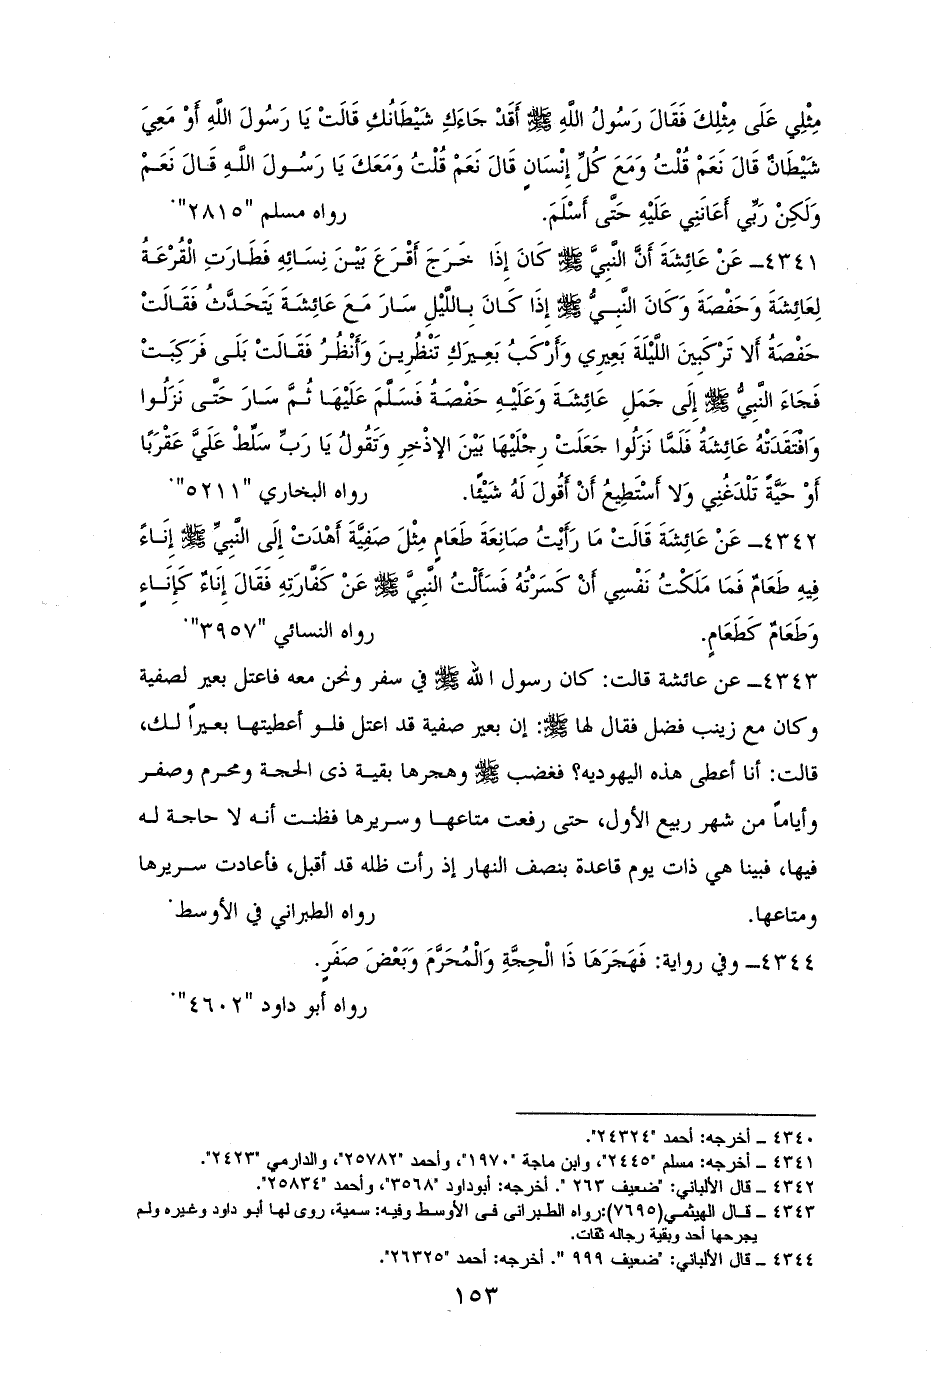 مِثْلِي عَلَى مِثْلِكَ فَقَالَ رَسُولُ اللَّهِ ﷺ أَقَدْ جَاءَكِ شَيْطَانُكِ قَالَتْ يَا رَسُولَ اللَّهِ أَوْ مَعِيَ
شَيْطَانٌ قَالَ نَعَمْ قُلْتُ وَمَعَ كُلِّ إِنْسَانٍ قَالَ نَعَمْ قُلْتُ وَمَعَكَ يَا رَسُولَ اللَّهِ قَالَ نَعَمْ
وَلَكِنْ رَبِّي أَعَانَنِي عَلَيْهِ حَتَّى أَسْلَمَ. رواه مسلم "٢٨١٥".
٤٣٤١ـ عَنْ عَائِشَةَ أَنَّ النَّبِيَّ ﷺ كَانَ إِذَا خَرَجَ أَقْرَعَ بَيْنَ نِسَائِهِ فَطَارَتِ الْقُرْعَةُ
لِعَائِشَةَ وَحَفْصَةَ وَكَانَ النَّبِيُّ ﷺ إِذَا كَانَ بِاللَّيْلِ سَارَ مَعَ عَائِشَةَ يَتَحَدَّثُ فَقَالَتْ
حَفْصَةُ أَلا تَرْكَبِينَ اللَّيْلَةَ بَعِيرِي وَأَرْكَبُ بَعِيرَكِ تَنْظُرِينَ وَأَنْظُرُ فَقَالَتْ بَلَى فَرَكِبَتْ
فَجَاءَ النَّبِيُّ ﷺ إِلَى جَمَلِ عَائِشَةَ وَعَلَيْهِ حَفْصَةُ فَسَلَّمَ عَلَيْهَا ثُمَّ سَارَ حَتَّى نَزَلُوا
وَافْتَقَدَتْهُ عَائِشَةُ فَلَمَّا نَزَلُوا جَعَلَتْ رِجْلَيْهَا بَيْنَ الإِذْخِرِ وَتَقُولُ يَا رَبِّ سَلِّطْ عَلَيَّ عَقْرَبًا
أَوْ حَيَّةً تَلْدَغُنِي وَلا أَسْتَطِيعُ أَنْ أَقُولَ لَهُ شَيْئًا. رواه البخاري "٥٢١١".
٤٣٤٢ـ عَنْ عَائِشَةَ قَالَتْ مَا رَأَيْتُ صَانِعَةَ طَعَامٍ مِثْلَ صَفِيَّةَ أَهْدَتْ إِلَى النَّبِيِّ ﷺ إِنَاءً
فِيهِ طَعَامٌ فَمَا مَلَكْتُ نَفْسِي أَنْ كَسَرْتُهُ فَسَأَلْتُ النَّبِيَّ ﷺ عَنْ كَفَّارَتِهِ فَقَالَ إِنَاءٌ كَإِنَاءٍ
وَطَعَامٌ كَطَعَامٍ. رواه النسائي "٣٩٥٧".
٤٣٤٣ـ عن عائشة قالت: كان رسول الله ﷺ في سفر ونحن معه فاعتل بعير لصفية
وكان مع زينب فضل فقال لها ﷺ: إن بعير صفية قد اعتل فلو أعطيتها بعيراً لك،
قالت: أنا أعطى هذه اليهوديه؟ فغضب ﷺ وهجرها بقية ذى الحجة ومحرم وصفر
وأياماً من شهر ربيع الأول، حتى رفعت متاعها وسريرها فظنت أنه لا حاجة له
فيها، فبينا هي ذات يوم قاعدة بنصف النهار إذ رأت ظله قد أقبل، فأعادت سريرها
ومتاعها. رواه الطبراني في الأوسط.
٤٣٤٤ـ وفي رواية: فَهَجَرَهَا ذَا الْحِجَّةِ وَالْمُحَرَّمَ وَبَعْضَ صَفَرٍ.
رواه أبو داود "٤٦٠٢".
٤٣٤٠ ـ أخرجه: أحمد "٢٤٣٢٤".
٤٣٤١ ـ أخرجه: مسلم "٢٤٤٥"، وابن ماجة "١٩٧٠"، وأحمد "٢٥٧٨٢"، والدارمي "٢٤٢٣".
٤٣٤٢ ـ قال الألباني: "ضعيف ٢٦٣ ". أخرجه: أبوداود "٣٥٦٨"، وأحمد "٢٥٨٣٤".
٤٣٤٣ ـ قال الهيثمي(٧٦٩٥):رواه الطبرانى فى الأوسط وفيه: سمية، روى لها أبو داود وغيره ولم
يجرحها أحد وبقية رجاله ثقات.
٤٣٤٤ ـ قال الألباني: "ضعيف ٩٩٩ ". أخرجه: أحمد "٢٦٣٢٥".
١٥٣